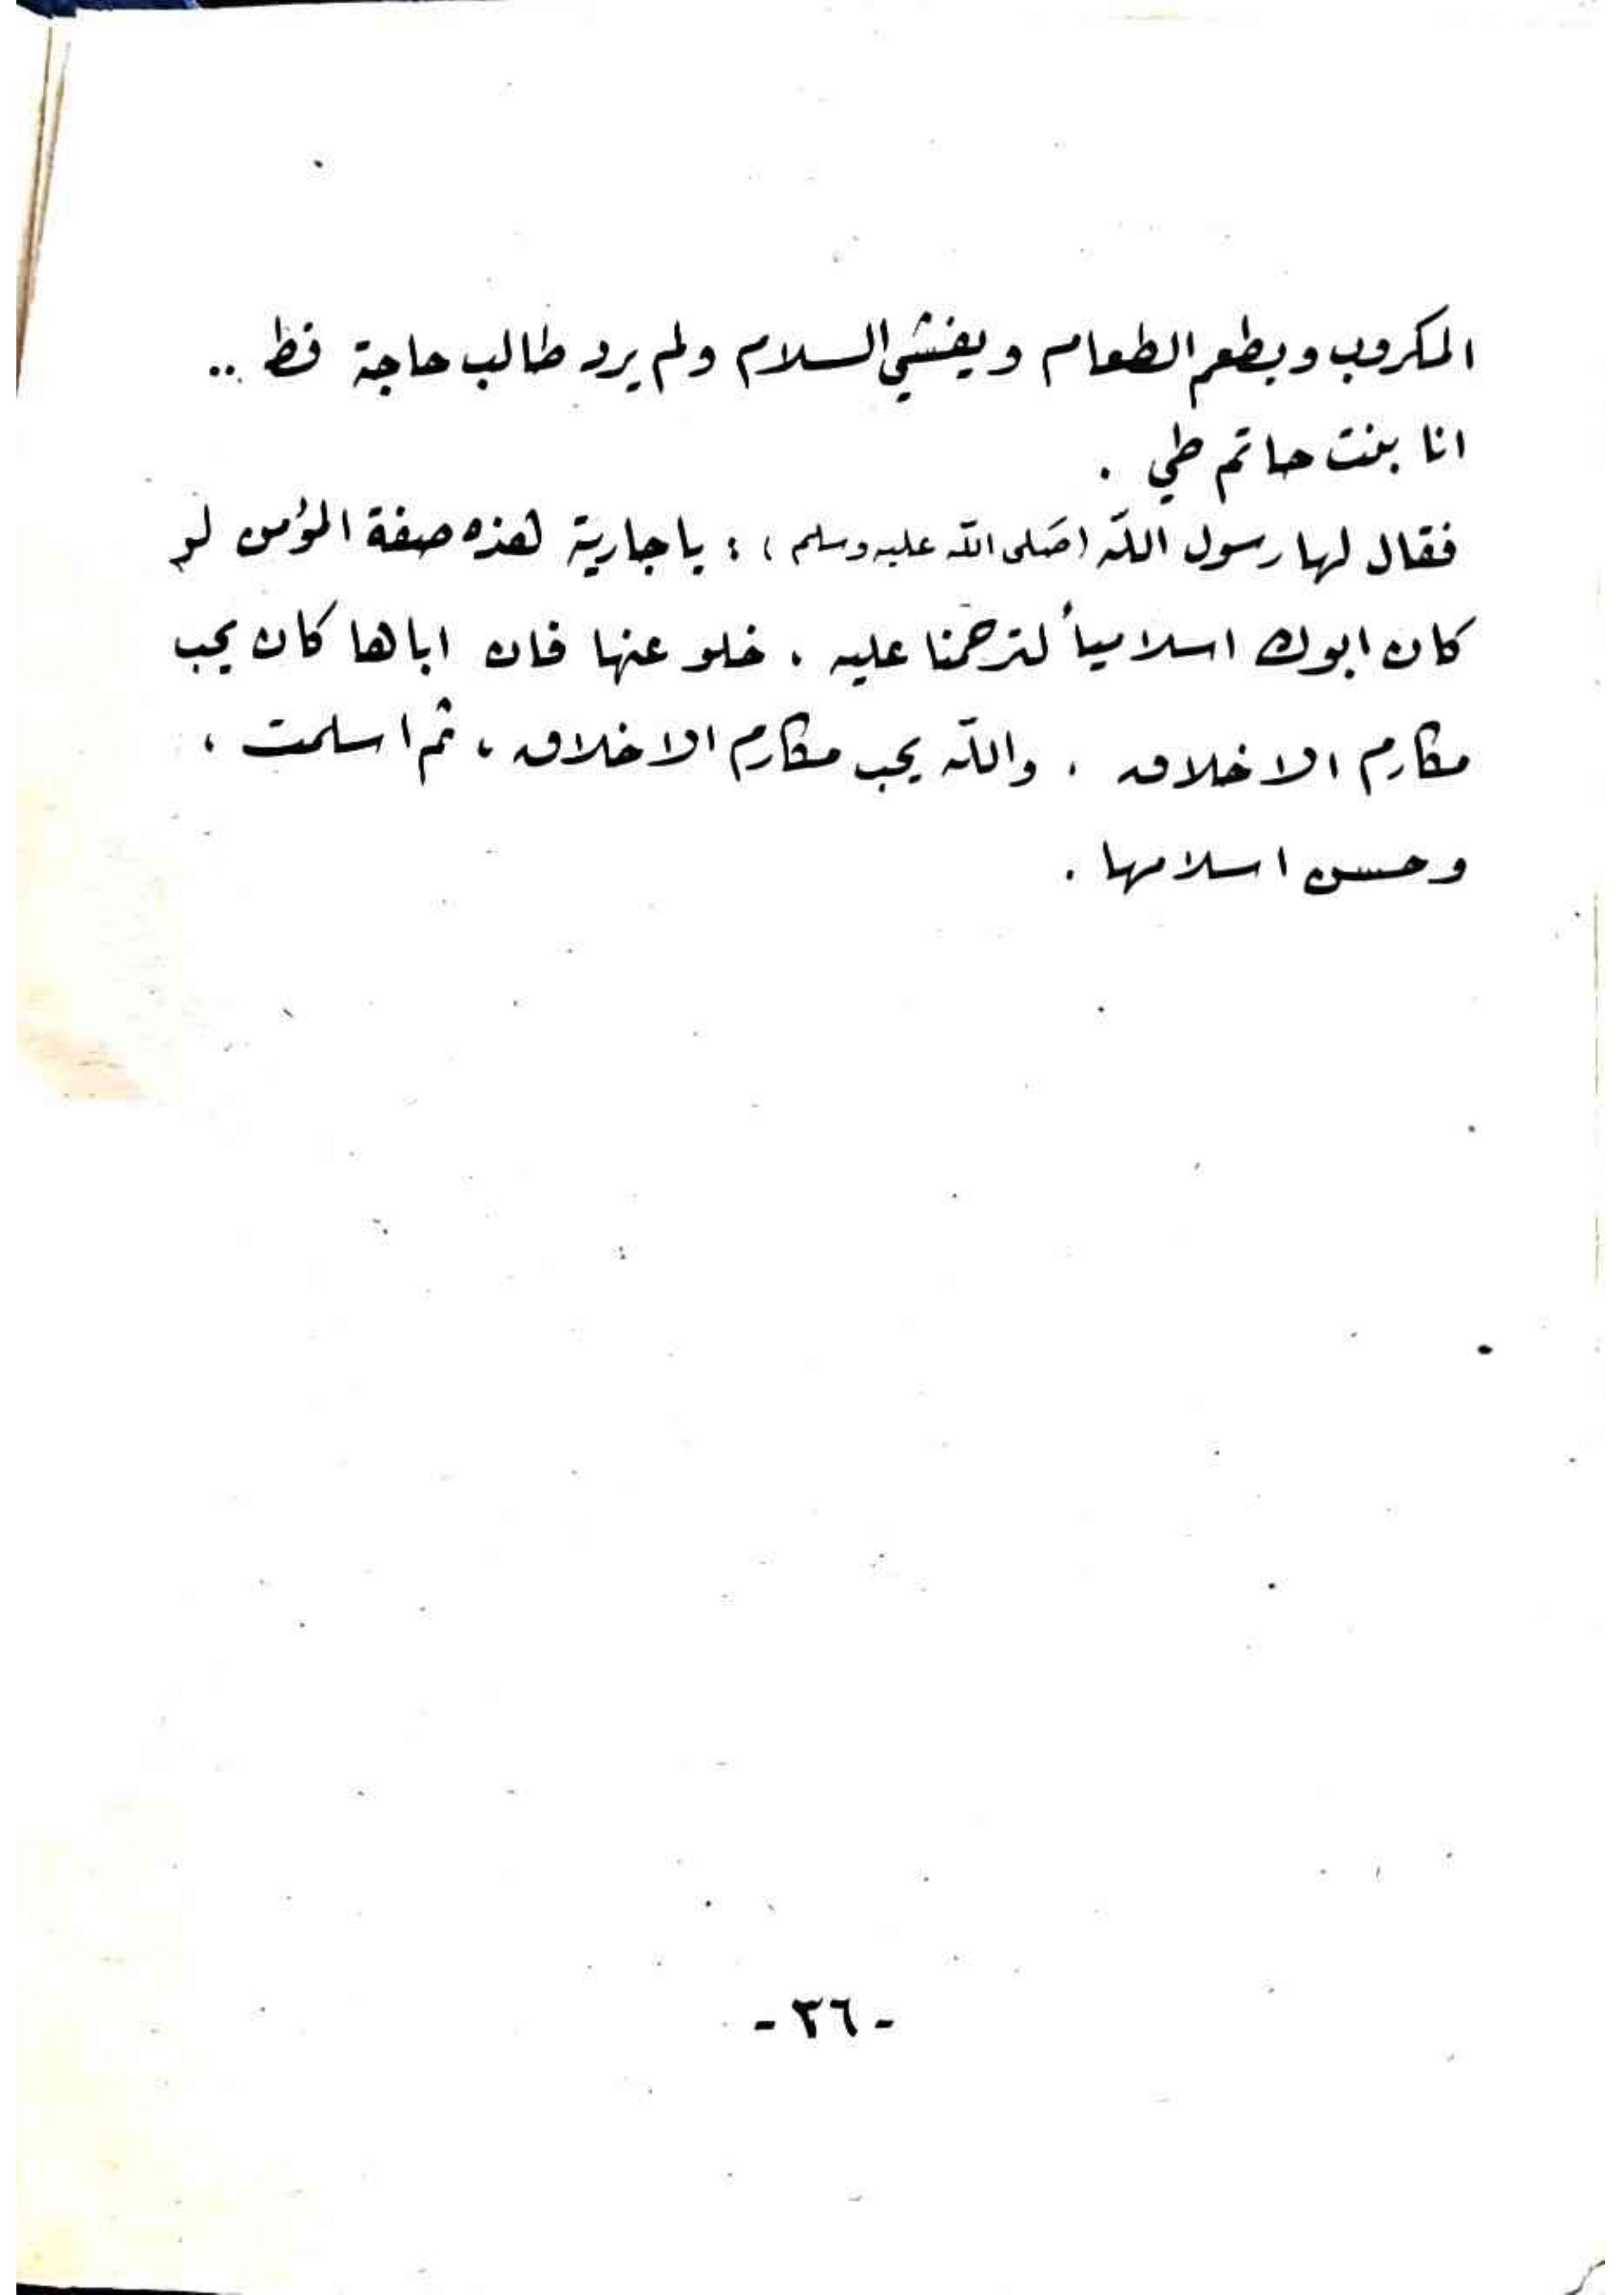 المكروب ويطعم الطعام ويفشي السلام ولم يرد طالب حاجة قط ..
انا بنت حاتم طي .
فقال لها رسول الله (صَلى الله عليه وسلم) : يا جارية هذه صفة المؤمن لو
كان ابوك اسلامياً لترحمنا عليه . خلو عنها فان اباها كان يحب
مكارم الاخلاق . والله يحب مكارم الاخلاق ، ثم اسلمت ،
وحسن اسلامها .
- ٣٦ -